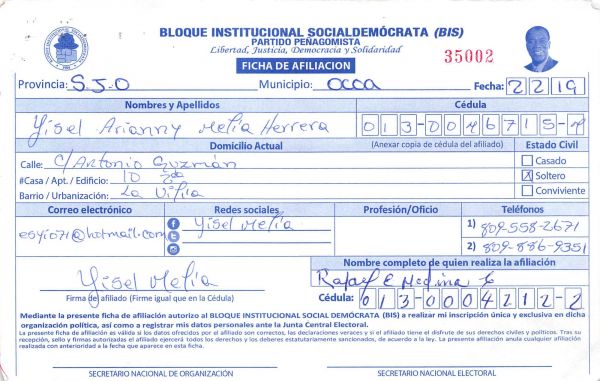 BLOQUE INSTITUCIONAL SOCIALDEMÓCRATA (BIS)
PARTIDO PEÑAGOMISTA
Libertad, Justicia, Democracia y Solidaridad
35002
FICHA DE AFILIACION
Provincia: S.J.O Municipio: OCOA Fecha: 2 2 19
Nombres y Apellidos Cédula
Yisel Arianny Melía Herrera 013-0046715-4
Domicilio Actual (Anexar copia de cédula del afiliado) Estado Civil
Calle: C/ Antonio Guzmán Casado
#Casa / Apt. / Edificio: 10 X Soltero
Barrio / Urbanización: La Vijía Conviviente
Correo electrónico Redes sociales Profesión/Oficio Teléfonos
esyi071@hotmail.com Yisel Melía 1) 809-558-2671
2) 809-886-9351
Nombre completo de quien realiza la afiliación
Yisel Melía Rafael E Medina
Firma del afiliado (Firme igual que en la Cédula) Cédula: 013-0004212-2
Mediante la presente ficha de afiliación autorizo al BLOQUE INSTITUCIONAL SOCIAL DEMÓCRATA (BIS) a realizar mi inscripción única y exclusiva en dicha
organización política, así como a registrar mis datos personales ante la Junta Central Electoral.
La presente ficha de afiliación es válida si los datos ofrecidos por el afiliado son correctos, las declaraciones veraces y si el afiliado tiene el disfrute de sus derechos civiles y políticos. Tras su
recepción, sello y firmas autorizadas el afiliado ejercerá todos los derechos y los deberes estatutariamente sancionados, de acuerdo a la ley. La presente afiliación anula cualquier afiliación
realizada con anterioridad a la fecha que aparece en esta ficha.
SECRETARIO NACIONAL DE ORGANIZACIÓN SECRETARIO NACIONAL ELECTORAL